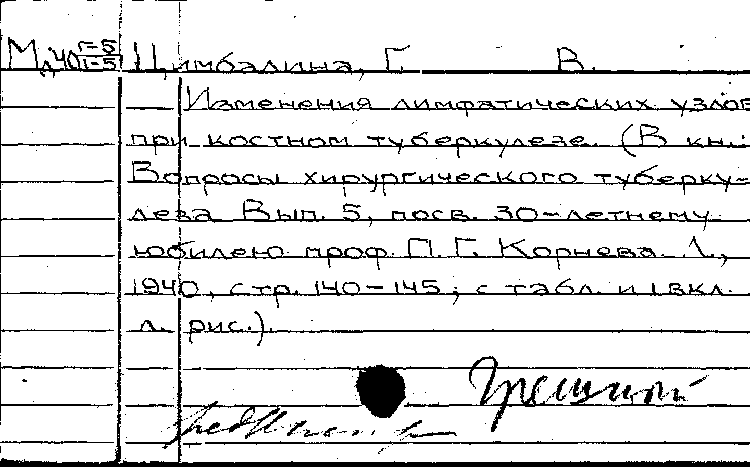 Цимбалина, Г. В.
Изменения лимфатических узлов
при костном туберкулезе. (В кн.:
Вопросы хирургического туберку-
леза Вып. 5, посв. 30-летнему
юбилею проф. П. Г. Корнева. Л.,
1940, стр. 140-145; с табл. и 1 вкл.
л. рис.).